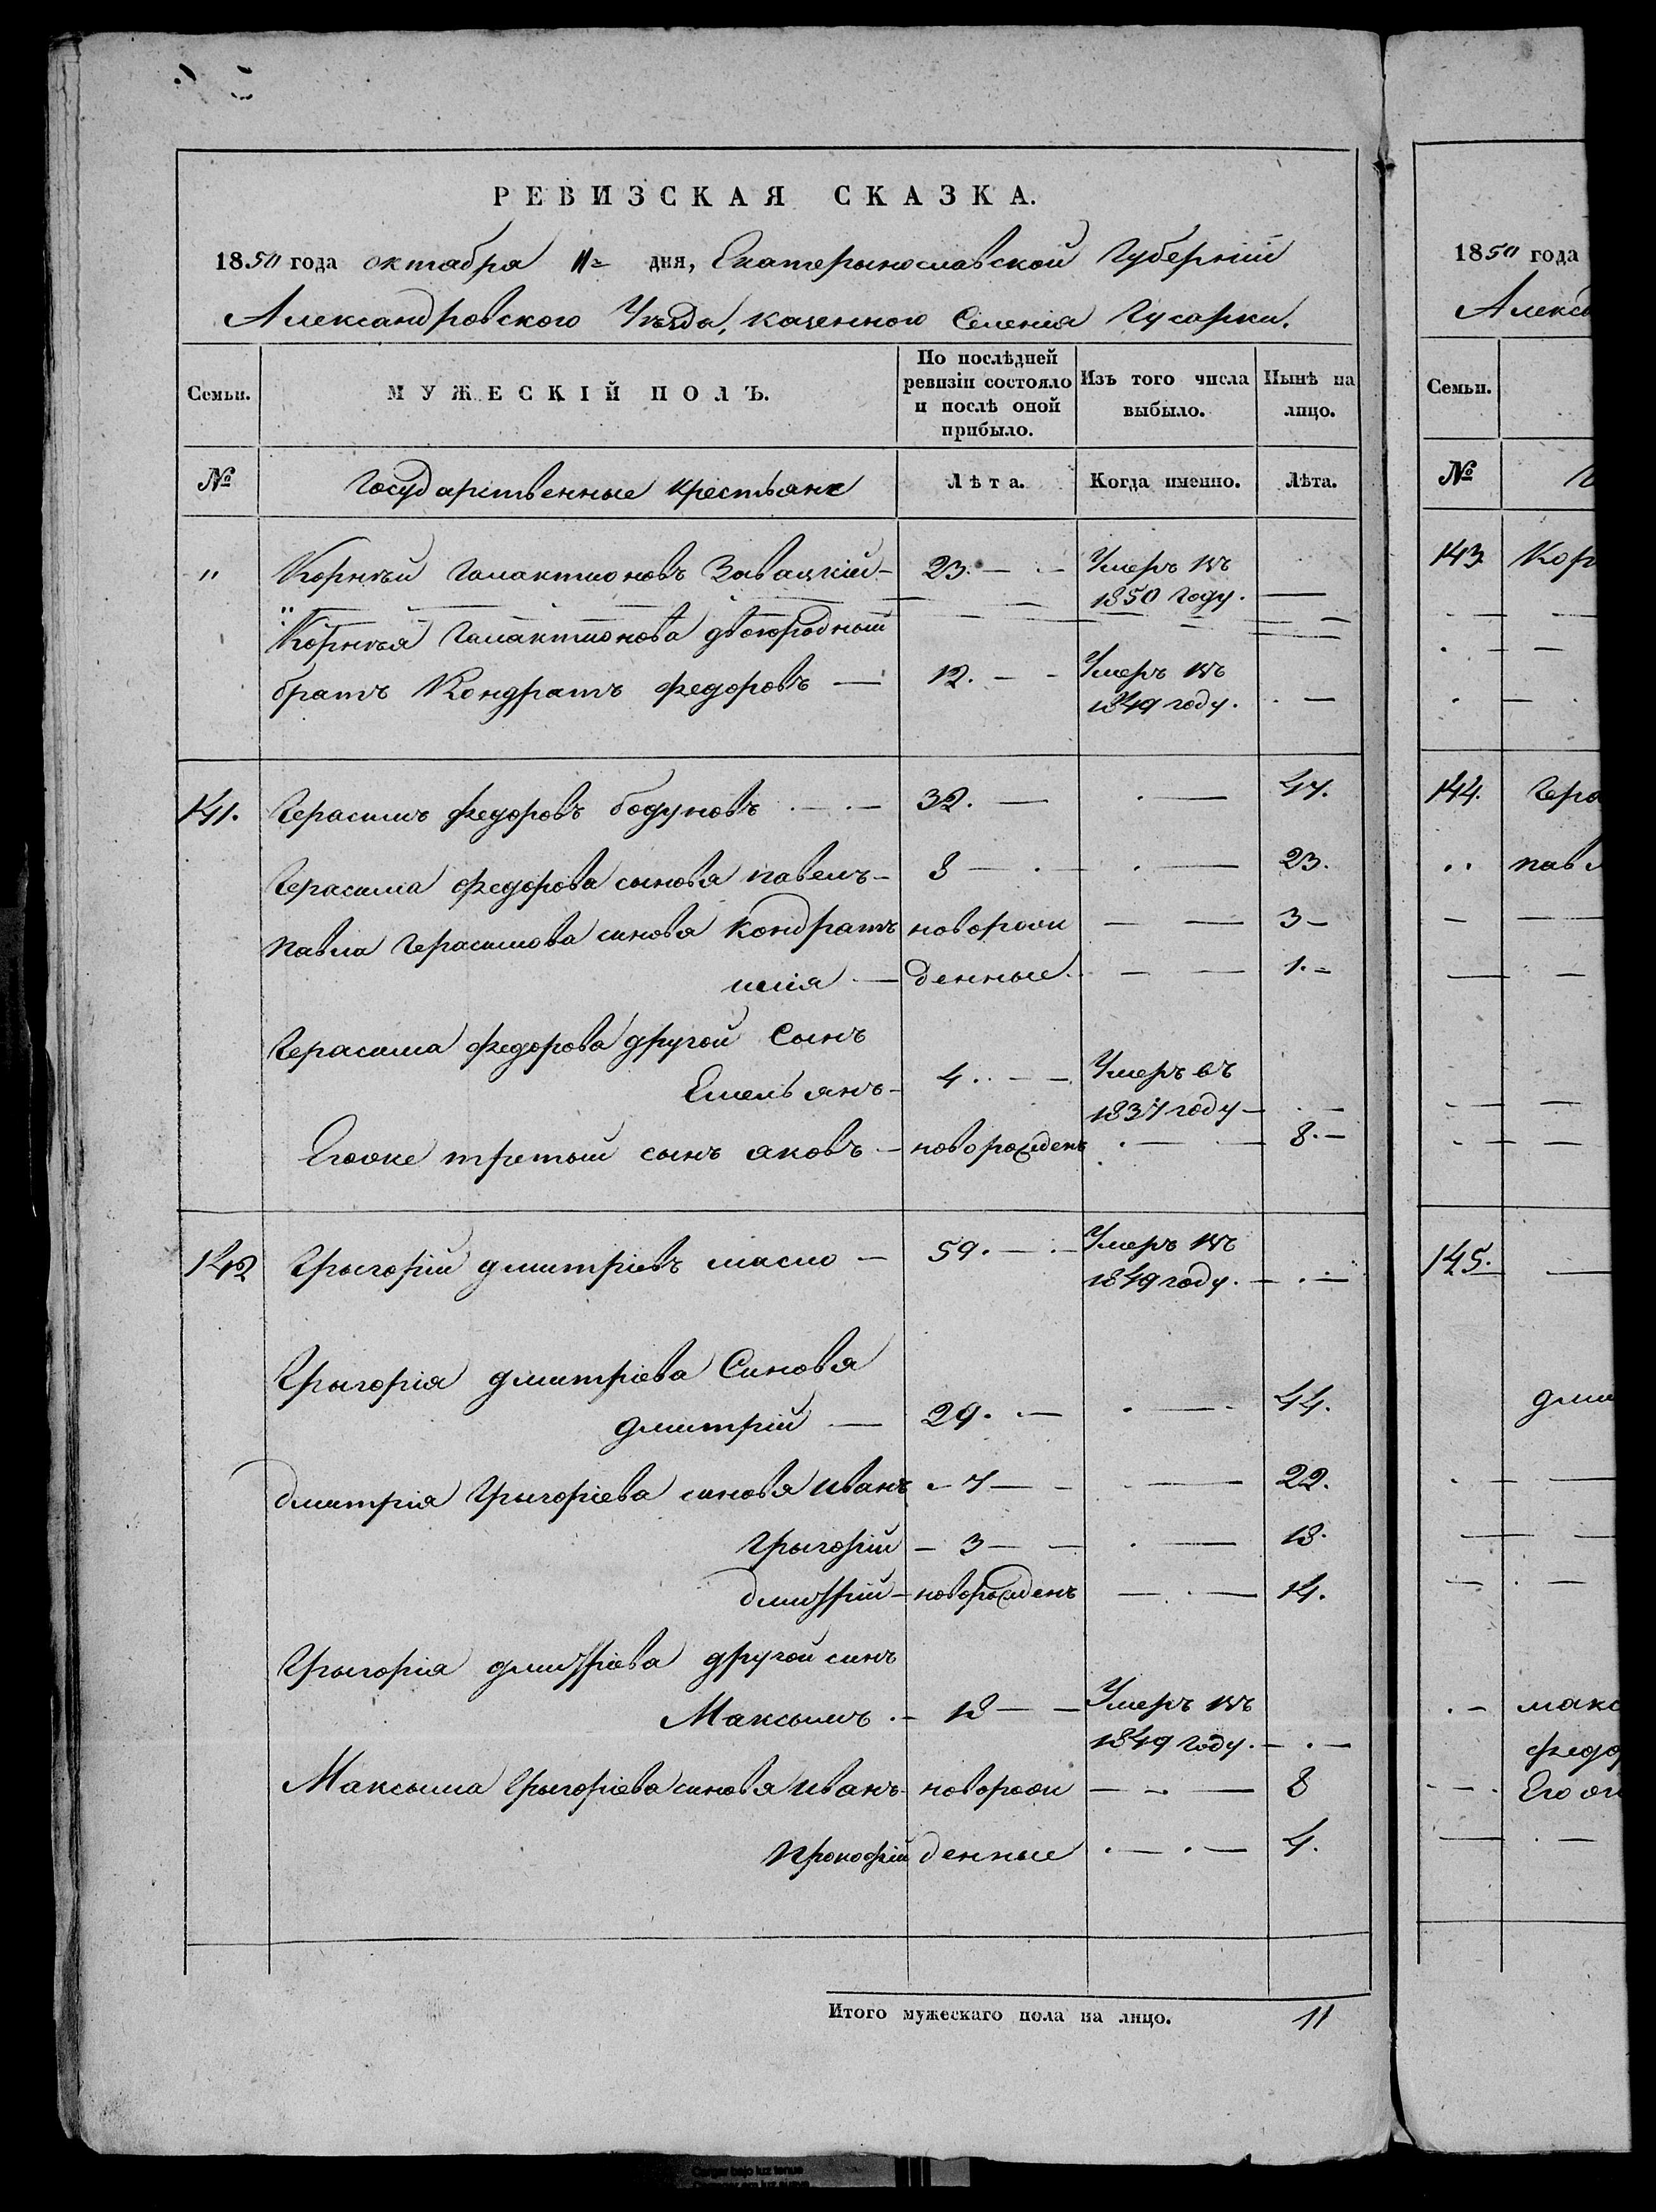 РЕВИЗСКАЯ СКАЗКА.
1850 года октабря 11 дня, Екатерынославской Губерніи
Александровского Уъзда, казенного Селенія Гусарки.
Семьи.
МУЖЕСКІЙ ПОЛЪ.
По послѣдней ревизіи состояло и послѣ оной прибыло.
Изъ того числа выбыло.
Нынѣ на лицо.
№
Государственные крестьяне
Лѣта.
Когда именно.
Лѣта.
" Корнѣй Галактионовъ Завацкій — 23. — Умеръ въ
1850 году. —
Корнѣя Галактионова двоюродный
братъ Кондратъ федоровъ — 12. — Умеръ въ
1849 году. —
141. Герасимъ федоровъ бодуновъ — 32. — — 47.
Герасима федорова сыновя павелъ — 8 — — 23.
павла Герасимова синовя Кондратъ новорож — — 3 —
илія — денные — — 1. —
Герасима федорова другой Сынъ
Емельянъ — 4. — Умеръ въ
1837 году —
Егоже третый сынъ яковъ — новорожденъ — 8. —
142 Грыгорій дмитріевъ масло — 59. — Умеръ въ
1849 году. —
Грыгорія дмитріева Синовя
дмитрій — 29. — — 44.
дмитрія Грыгоріева синовя иванъ — 7 — — 22.
Грыгорій — 3 — — 18.
дмитрій — новорожденъ — 14.
Грыгорія дмитріева другой синъ
Максымъ — 18 — Умеръ въ
1849 году. —
Максыма Грыгоріева синовя иванъ новорож — — 8
прокофій денные — — 4.
Итого мужескаго пола на лицо. 11
1850 года
Алекса
Семьи.
№
143. Кор
144. Гера
пав
145. —
дми
макс
федо
Его